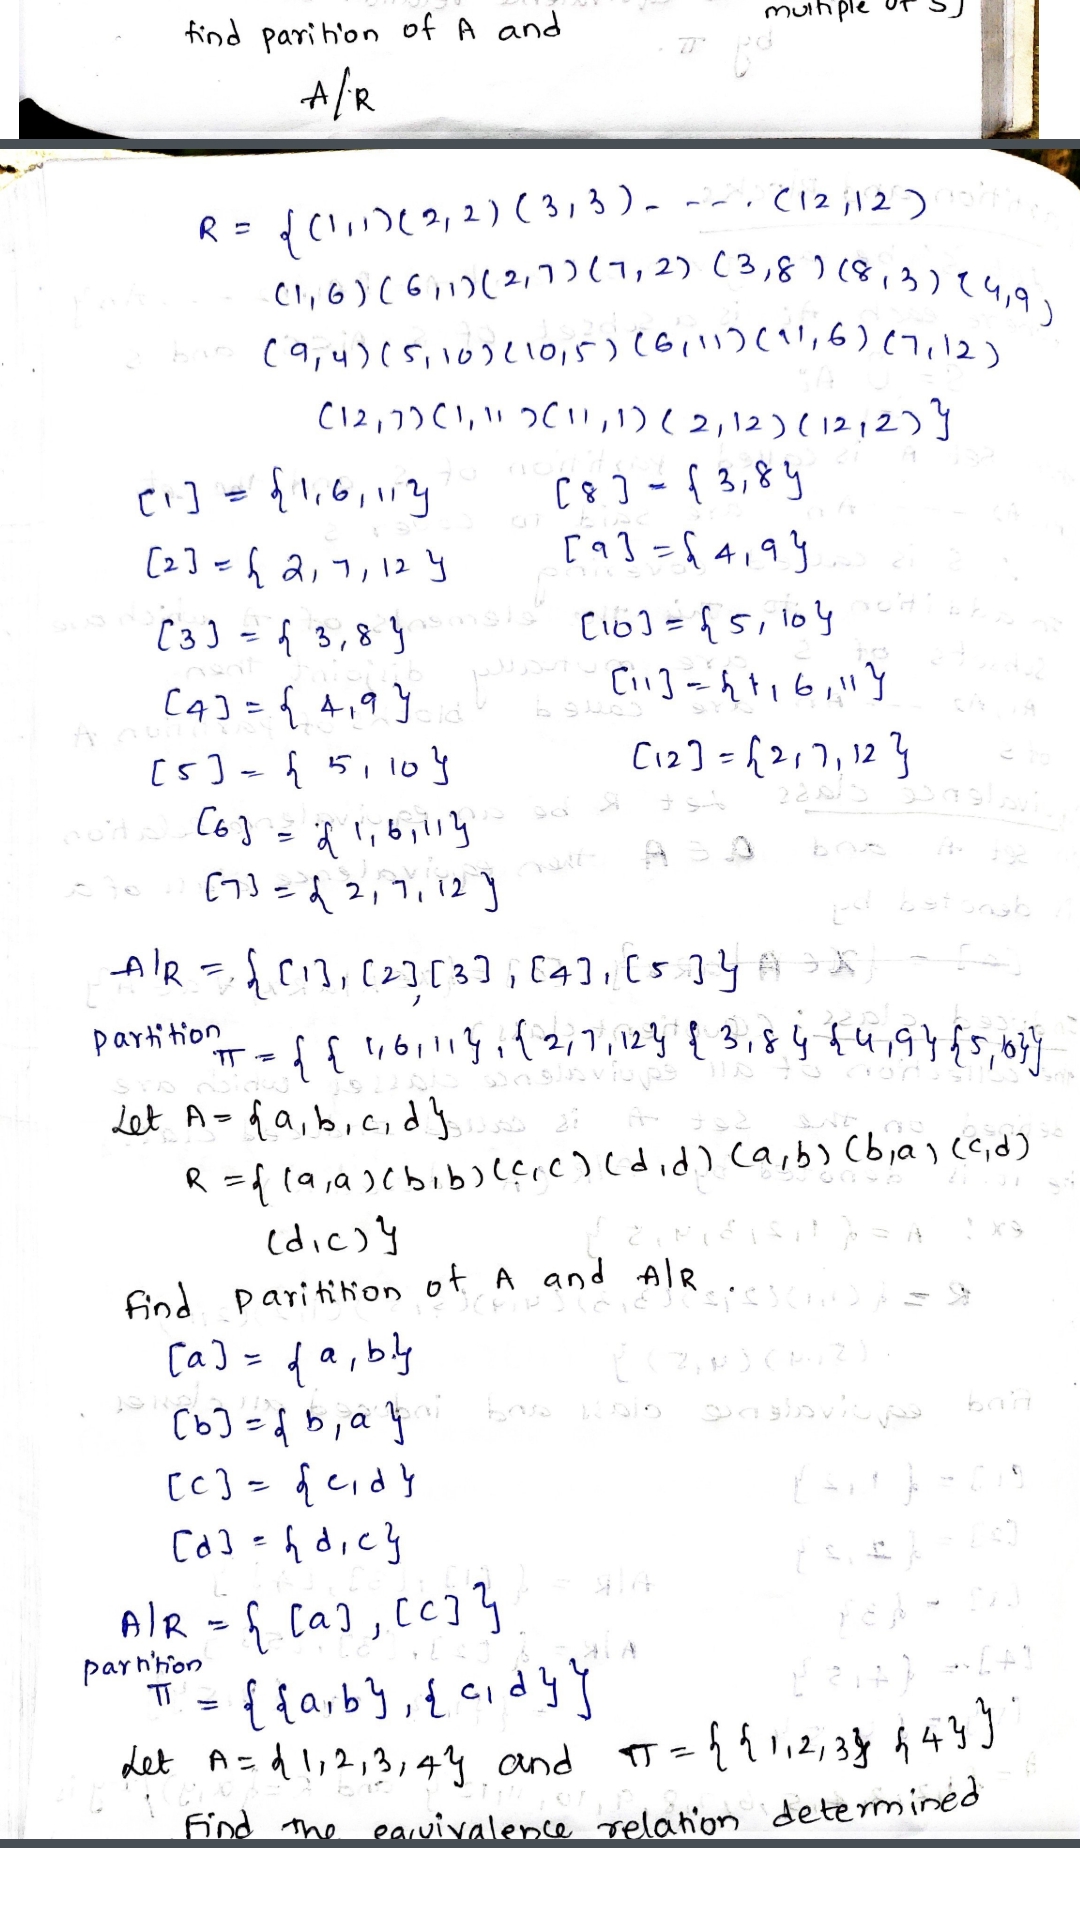 multiple of 5}
find parition of A and
A/R
R = {(1,1)(2,2)(3,3)- --. (12,12)
(1,6)(6,1)(2,7)(7,2) (3,8)(8,3)(4,9)
(9,4)(5,10)(10,5)(6,11)(11,6)(7,12)
(12,7)(1,11)(11,1)(2,12)(12,2)}
[1] = {1,6,11}
[8] = {3,8}
[2] = {2,7,12}
[9] = {4,9}
[3] = {3,8}
[10] = {5,10}
[4] = {4,9}
[11] = {1,6,11}
[5] = {5,10}
[12] = {2,7,12}
[6] = {1,6,11}
[7] = {2,7,12}
A|R = {[1],[2],[3],[4],[5]}
partition π = {{1,6,11},{2,7,12}{3,8}{4,9}{5,10}}
Let A = {a,b,c,d}
R = {(a,a)(b,b)(c,c)(d,d)(a,b)(b,a)(c,d)
(d,c)}
find paritition of A and A|R.
[a] = {a,b}
[b] = {b,a}
[c] = {c,d}
[d] = {d,c}
A|R = {[a],[c]}
partition π = {{a,b},{c,d}}
Let A = {1,2,3,4} and π = {{1,2,3}{4}}
Find the equivalence relation determined